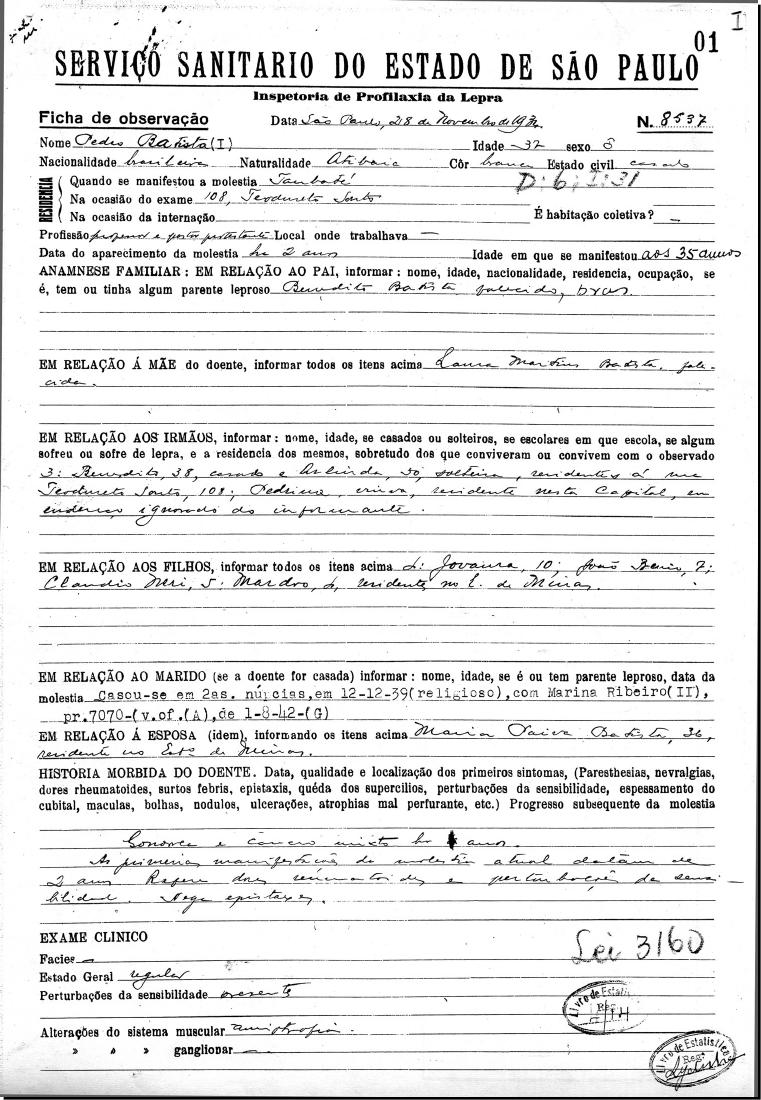 I
01
SERVIÇO SANITARIO DO ESTADO DE SÃO PAULO
Inspetoria de Profilaxia da Lepra
Ficha de observação Data São Paulo, 28 de Novembro de 193 N. 8537
Nome Pedro Batista (I) Idade 37 sexo ♂
Nacionalidade brasileira Naturalidade Atibaia Côr branca Estado civil casado
RESIDENCIA
Quando se manifestou a molestia Taubaté D. 6. I. 31
Na ocasião do exame 108, Teodureto Souto
Na ocasião da internação É habitação coletiva? —
Profissão professor e pastor protestante Local onde trabalhava —
Data do aparecimento da molestia ha 2 anos Idade em que se manifestou aos 35 annos
ANAMNESE FAMILIAR : EM RELAÇÃO AO PAI, informar : nome, idade, nacionalidade, residencia, ocupação, se
é, tem ou tinha algum parente leproso Benedito Batista falecido, bras.
EM RELAÇÃO Á MÃE do doente, informar todos os itens acima Laura Martins Batista, fale-
cida.
EM RELAÇÃO AOS IRMÃOS, informar : nome, idade, se casados ou solteiros, se escolares em que escola, se algum
sofreu ou sofre de lepra, e a residencia dos mesmos, sobretudo dos que conviveram ou convivem com o observado
3: Benedito, 38, casado e Arlinda, 30, solteira, residentes á rua
Teodureto Souto, 108; Pedrina, viuva, residente nesta Capital, em
endereço ignorado do informante.
EM RELAÇÃO AOS FILHOS, informar todos os itens acima 4: Jovaura, 10; João 7;
Claudio 5; 4, residentes no E. de Minas.
EM RELAÇÃO AO MARIDO (se a doente for casada) informar : nome, idade, se é ou tem parente leproso, data da
molestia Casou-se em 2as. núrcias,em 12-12-39(religioso),com Marina Ribeiro(II),
pr.7070-(v.of.(A),de 1-8-42-(G)
EM RELAÇÃO Á ESPOSA (idem), informando os itens acima Maria Paiva Batista, 36,
residente no Estº de Minas.
HISTÓRIA MORBIDA DO DOENTE. Data, qualidade e localização dos primeiros sintomas, (Paresthesias, nevralgias,
dores rheumatoides, surtos febris, epistaxis, quéda dos supercilios, perturbações da sensibilidade, espessamento do
cubital, maculas, bolhas, nodulos, ulcerações, atrophias mal perfurante, etc.) Progresso subsequente da molestia
Gonorréa e cancro misto ha anos.
As primeiras manifestações da molestia atual datam de
2 anos Refere dores reumatoides e perturbações da sensi-
bilidade. Nega epistaxes.
EXAME CLINICO
Lei 3160
Facies —
Estado Geral regular
Perturbações da sensibilidade presente
Livro de Estati
Reg
Alterações do sistema muscular amiotrofia.
» » » ganglionar —
Livro de Estatistica
Regº